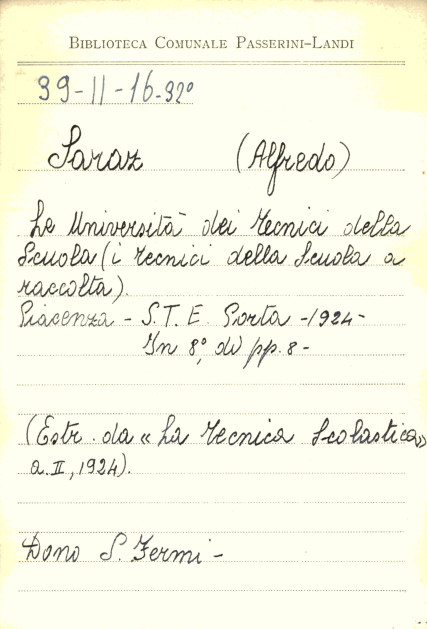 BIBLIOTECA COMUNALE PASSERINI-LANDI
39-II-16-32°
Saraz (Alfredo)
Le Università dei tecnici della
Scuola (i tecnici della Scuola a
raccolta).
Piacenza - S.T.E. Porta -1924-
In 8°, di pp. 8-
(Estr. da «La tecnica Scolastica»
a. II, 1924).
Dono S. Fermi -